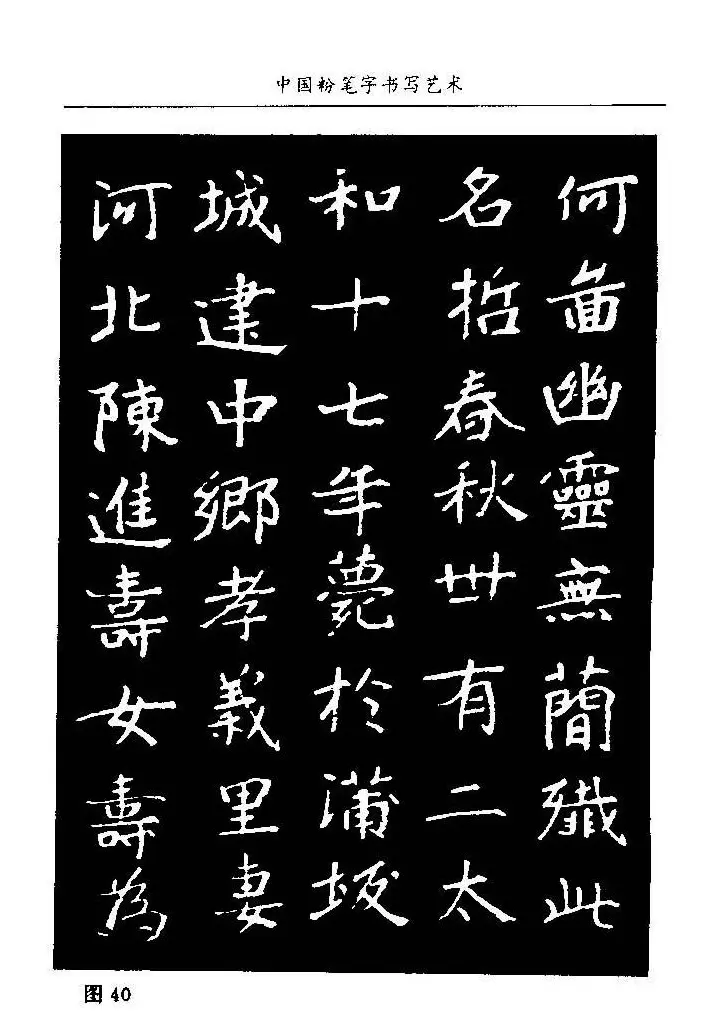 中国粉笔字书写艺术
何啚幽靈無簡殲此
名哲春秋卌有二太
和十七年薨於蒲坂
城建中鄉孝義里妻
河北陳進壽女壽為
图 40